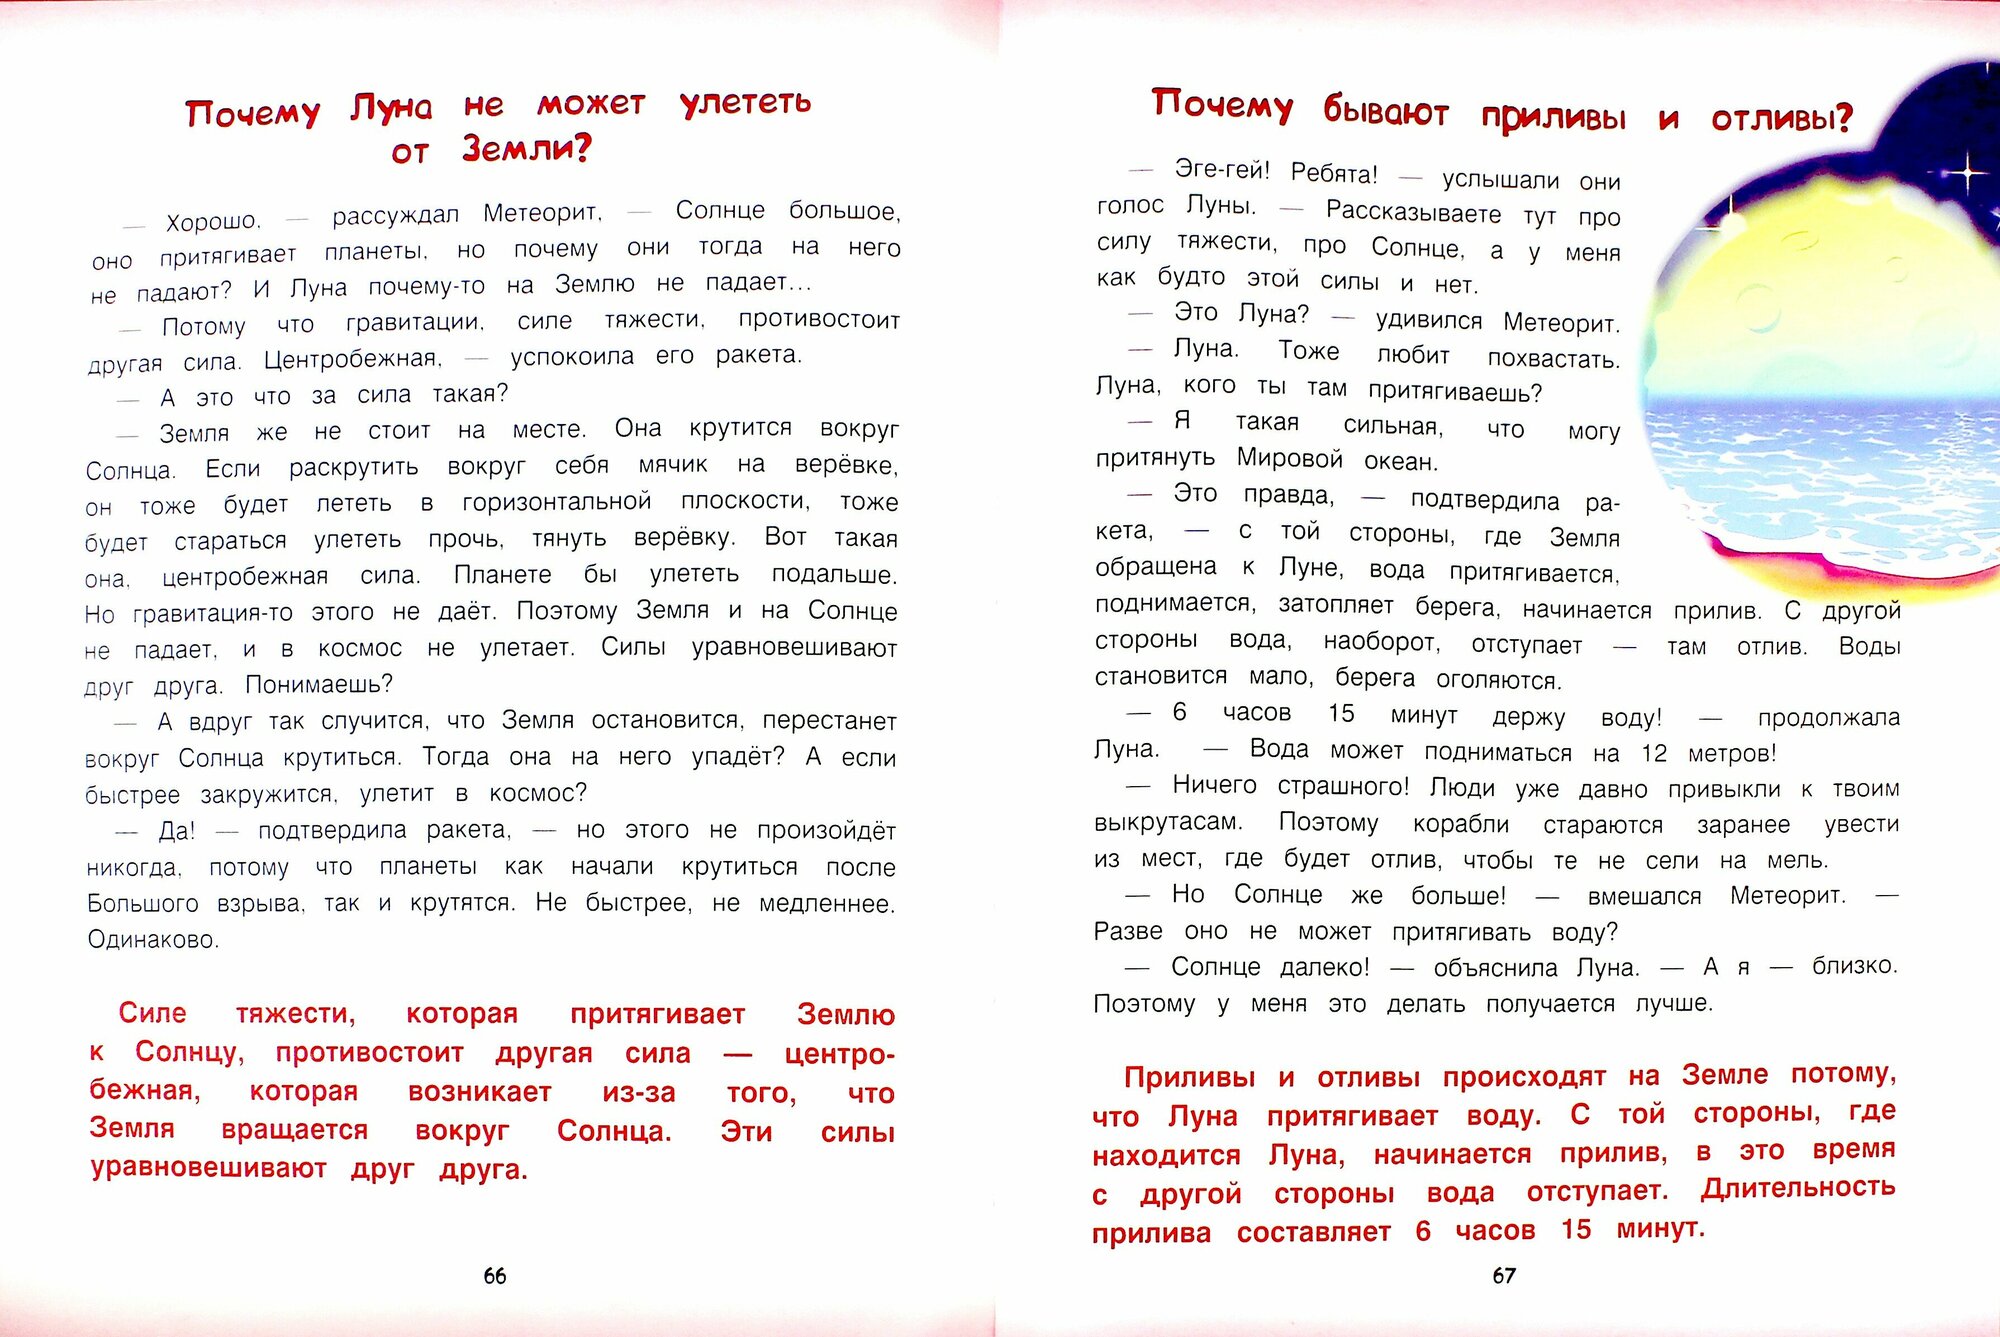 Почему Луна не может улететь
от Земли?
— Хорошо, — рассуждал Метеорит, — Солнце большое,
оно притягивает планеты, но почему они тогда на него
не падают? И Луна почему-то на Землю не падает...
— Потому что гравитации, силе тяжести, противостоит
другая сила. Центробежная, — успокоила его ракета.
— А это что за сила такая?
— Земля же не стоит на месте. Она крутится вокруг
Солнца. Если раскрутить вокруг себя мячик на верёвке,
он тоже будет лететь в горизонтальной плоскости, тоже
будет стараться улететь прочь, тянуть верёвку. Вот такая
она, центробежная сила. Планете бы улететь подальше.
Но гравитация-то этого не даёт. Поэтому Земля и на Солнце
не падает, и в космос не улетает. Силы уравновешивают
друг друга. Понимаешь?
— А вдруг так случится, что Земля остановится, перестанет
вокруг Солнца крутиться. Тогда она на него упадёт? А если
быстрее закружится, улетит в космос?
— Да! — подтвердила ракета, — но этого не произойдёт
никогда, потому что планеты как начали крутиться после
Большого взрыва, так и крутятся. Не быстрее, не медленнее.
Одинаково.
Силе тяжести, которая притягивает Землю
к Солнцу, противостоит другая сила — центро-
бежная, которая возникает из-за того, что
Земля вращается вокруг Солнца. Эти силы
уравновешивают друг друга.
66
Почему бывают приливы и отливы?
— Эге-гей! Ребята! — услышали они
голос Луны. — Рассказываете тут про
силу тяжести, про Солнце, а у меня
как будто этой силы и нет.
— Это Луна? — удивился Метеорит.
— Луна. Тоже любит похвастать.
Луна, кого ты там притягиваешь?
— Я такая сильная, что могу
притянуть Мировой океан.
— Это правда, — подтвердила ра-
кета, — с той стороны, где Земля
обращена к Луне, вода притягивается,
поднимается, затопляет берега, начинается прилив. С другой
стороны вода, наоборот, отступает — там отлив. Воды
становится мало, берега оголяются.
— 6 часов 15 минут держу воду! — продолжала
Луна. — Вода может подниматься на 12 метров!
— Ничего страшного! Люди уже давно привыкли к твоим
выкрутасам. Поэтому корабли стараются заранее увести
из мест, где будет отлив, чтобы те не сели на мель.
— Но Солнце же больше! — вмешался Метеорит. —
Разве оно не может притягивать воду?
— Солнце далеко! — объяснила Луна. — А я — близко.
Поэтому у меня это делать получается лучше.
Приливы и отливы происходят на Земле потому,
что Луна притягивает воду. С той стороны, где
находится Луна, начинается прилив, в это время
с другой стороны вода отступает. Длительность
прилива составляет 6 часов 15 минут.
67